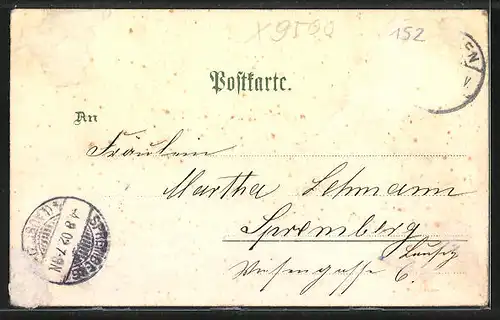 x9500
152
EN
V.
Postkarte.
An
Fräulein
Martha Lehmann
Spremberg
Lausitz
Wiesengasse 6.
SPREMBERG
8 02 7-8N